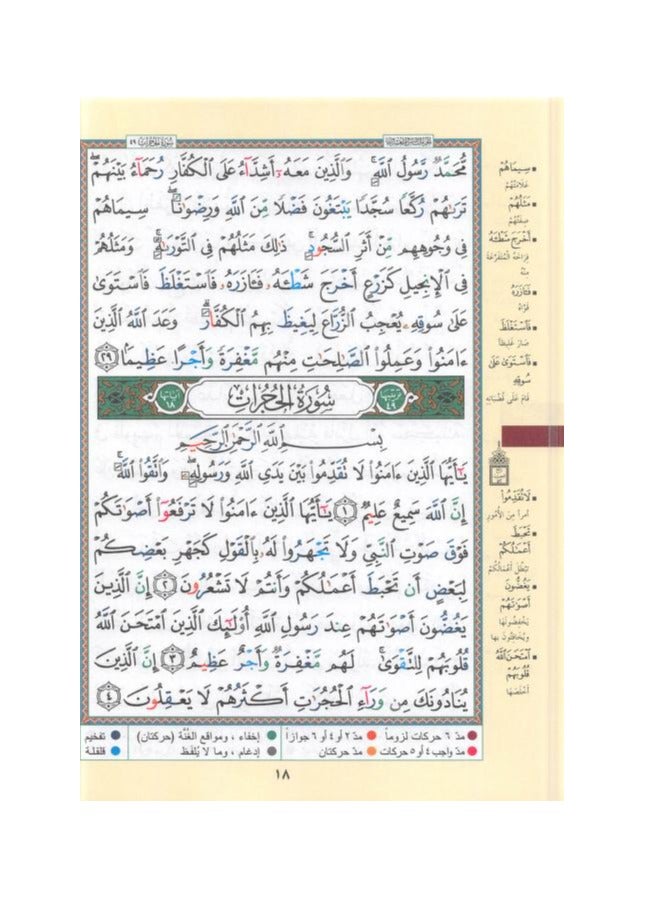 سورة الحجرات ٤٩
مُّحَمَّدٌ رَّسُولُ ٱللَّهِ ۚ وَٱلَّذِينَ مَعَهُۥٓ أَشِدَّآءُ عَلَى ٱلْكُفَّارِ رُحَمَآءُ بَيْنَهُمْ ۖ
تَرَىٰهُمْ رُكَّعًا سُجَّدًا يَبْتَغُونَ فَضْلًا مِّنَ ٱللَّهِ وَرِضْوَٰنًا ۖ سِيمَاهُمْ
فِى وُجُوهِهِم مِّنْ أَثَرِ ٱلسُّجُودِ ۚ ذَٰلِكَ مَثَلُهُمْ فِى ٱلتَّوْرَىٰةِ ۚ وَمَثَلُهُمْ
فِى ٱلْإِنجِيلِ كَزَرْعٍ أَخْرَجَ شَطْـَٔهُۥ فَـَٔازَرَهُۥ فَٱسْتَغْلَظَ فَٱسْتَوَىٰ
عَلَىٰ سُوقِهِۦ يُعْجِبُ ٱلزُّرَّاعَ لِيَغِيظَ بِهِمُ ٱلْكُفَّارَ ۗ وَعَدَ ٱللَّهُ ٱلَّذِينَ
ءَامَنُوا۟ وَعَمِلُوا۟ ٱلصَّٰلِحَٰتِ مِنْهُم مَّغْفِرَةً وَأَجْرًا عَظِيمًۢا ٢٩
ترتيبها ٤٩ سُورَةُ الحُجُرَاتِ آياتها ١٨
بِسْمِ ٱللَّهِ ٱلرَّحْمَٰنِ ٱلرَّحِيمِ
يَٰٓأَيُّهَا ٱلَّذِينَ ءَامَنُوا۟ لَا تُقَدِّمُوا۟ بَيْنَ يَدَىِ ٱللَّهِ وَرَسُولِهِۦ ۖ وَٱتَّقُوا۟ ٱللَّهَ ۚ
إِنَّ ٱللَّهَ سَمِيعٌ عَلِيمٌ ١ يَٰٓأَيُّهَا ٱلَّذِينَ ءَامَنُوا۟ لَا تَرْفَعُوٓا۟ أَصْوَٰتَكُمْ
فَوْقَ صَوْتِ ٱلنَّبِىِّ وَلَا تَجْهَرُوا۟ لَهُۥ بِٱلْقَوْلِ كَجَهْرِ بَعْضِكُمْ
لِبَعْضٍ أَن تَحْبَطَ أَعْمَٰلُكُمْ وَأَنتُمْ لَا تَشْعُرُونَ ٢ إِنَّ ٱلَّذِينَ
يَغُضُّونَ أَصْوَٰتَهُمْ عِندَ رَسُولِ ٱللَّهِ أُو۟لَٰٓئِكَ ٱلَّذِينَ ٱمْتَحَنَ ٱللَّهُ
قُلُوبَهُمْ لِلتَّقْوَىٰ ۚ لَهُم مَّغْفِرَةٌ وَأَجْرٌ عَظِيمٌ ٣ إِنَّ ٱلَّذِينَ
يُنَادُونَكَ مِن وَرَآءِ ٱلْحُجُرَٰتِ أَكْثَرُهُمْ لَا يَعْقِلُونَ ٤
سِيمَاهُمْ
عَلَامَتُهُمْ
مَثَلُهُمْ
صِفَتُهُمْ
أَخْرَجَ شَطْـَٔهُ
فِرَاخَهُ المُتَفَرِّعَةَ
مِنْهُ
فَـَٔازَرَهُ
قَوَّاهُ
فَٱسْتَغْلَظَ
صَارَ غَلِيظًا
فَٱسْتَوَىٰ عَلَىٰ
سُوقِهِ
قَامَ عَلَى قُضْبَانِهِ
لَا تُقَدِّمُوا۟
أمراً مِنَ الأُمُورِ
تَحْبَطَ
أَعْمَٰلُكُمْ
تَبْطُلَ أَعْمَالُكُمْ
يَغُضُّونَ
أَصْوَٰتَهُمْ
يَخْفِضُونَهَا
وَيُخَافِتُونَ بِهَا
ٱمْتَحَنَ ٱللَّهُ
قُلُوبَهُمْ
أَخْلَصَهَا
مدّ ٦ حركات لزوماً مدّ ٢ أو ٤ أو ٦ جوازاً إخفاء ، ومواقع الغُنَّة (حركتان) تفخيم
مدّ واجب ٤ أو ٥ حركات مدّ حركتان إدغام ، وما لا يُلفَظ قلقلة
١٨